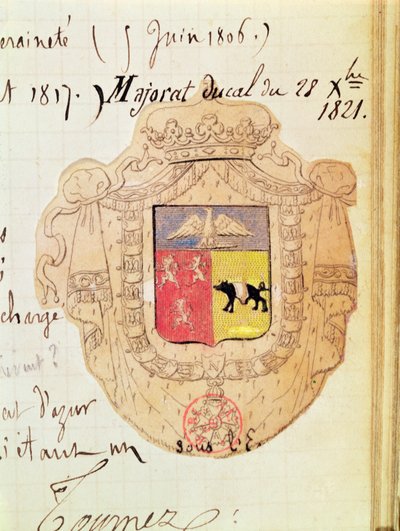 eraineté ( 5 Juin 1806.)
t 1817. ) Majorat ducal du 28 Xbre
1821.
s
charge
N
at d'azur
s'étant un
sous l'E
Tournez